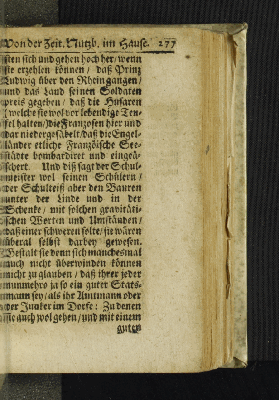 Von der Zeit. Nutzb. im Hause. 177
sten sich und gehen hoch her / wenn
sie erzehlen können / daß Prinz
Ludwig über den Rhein gangen /
und das Land seinen Soldaten
preis gegeben / daß die Husaren
(welche sie wol vor lebendige Teu-
fel halten) die Franzosen hier und
dar niedergesäbelt / daß die Engel-
länder etliche Französische See-
städte bombardiret und eingeä-
schert. Und diß sagt der Schul-
meister vol seinen Schülern /
der Schulteiß aber den Bauren
unter der Linde und in der
Schenke / mit solchen gravitäti-
schen Worten und Umständen /
daß einer schweren solte / sie wären
überal selbst darbey gewesen.
Gestalt sie denn sich manchesmal
auch nicht überwinden können
nicht zu glauben / daß ihrer jeder
nunmehro ja so ein guter Stats-
mann sey / als ihr Amtmann oder
der Junker im Dorfe: Zu denen
sie auch wol gehen / und mit einem
guten